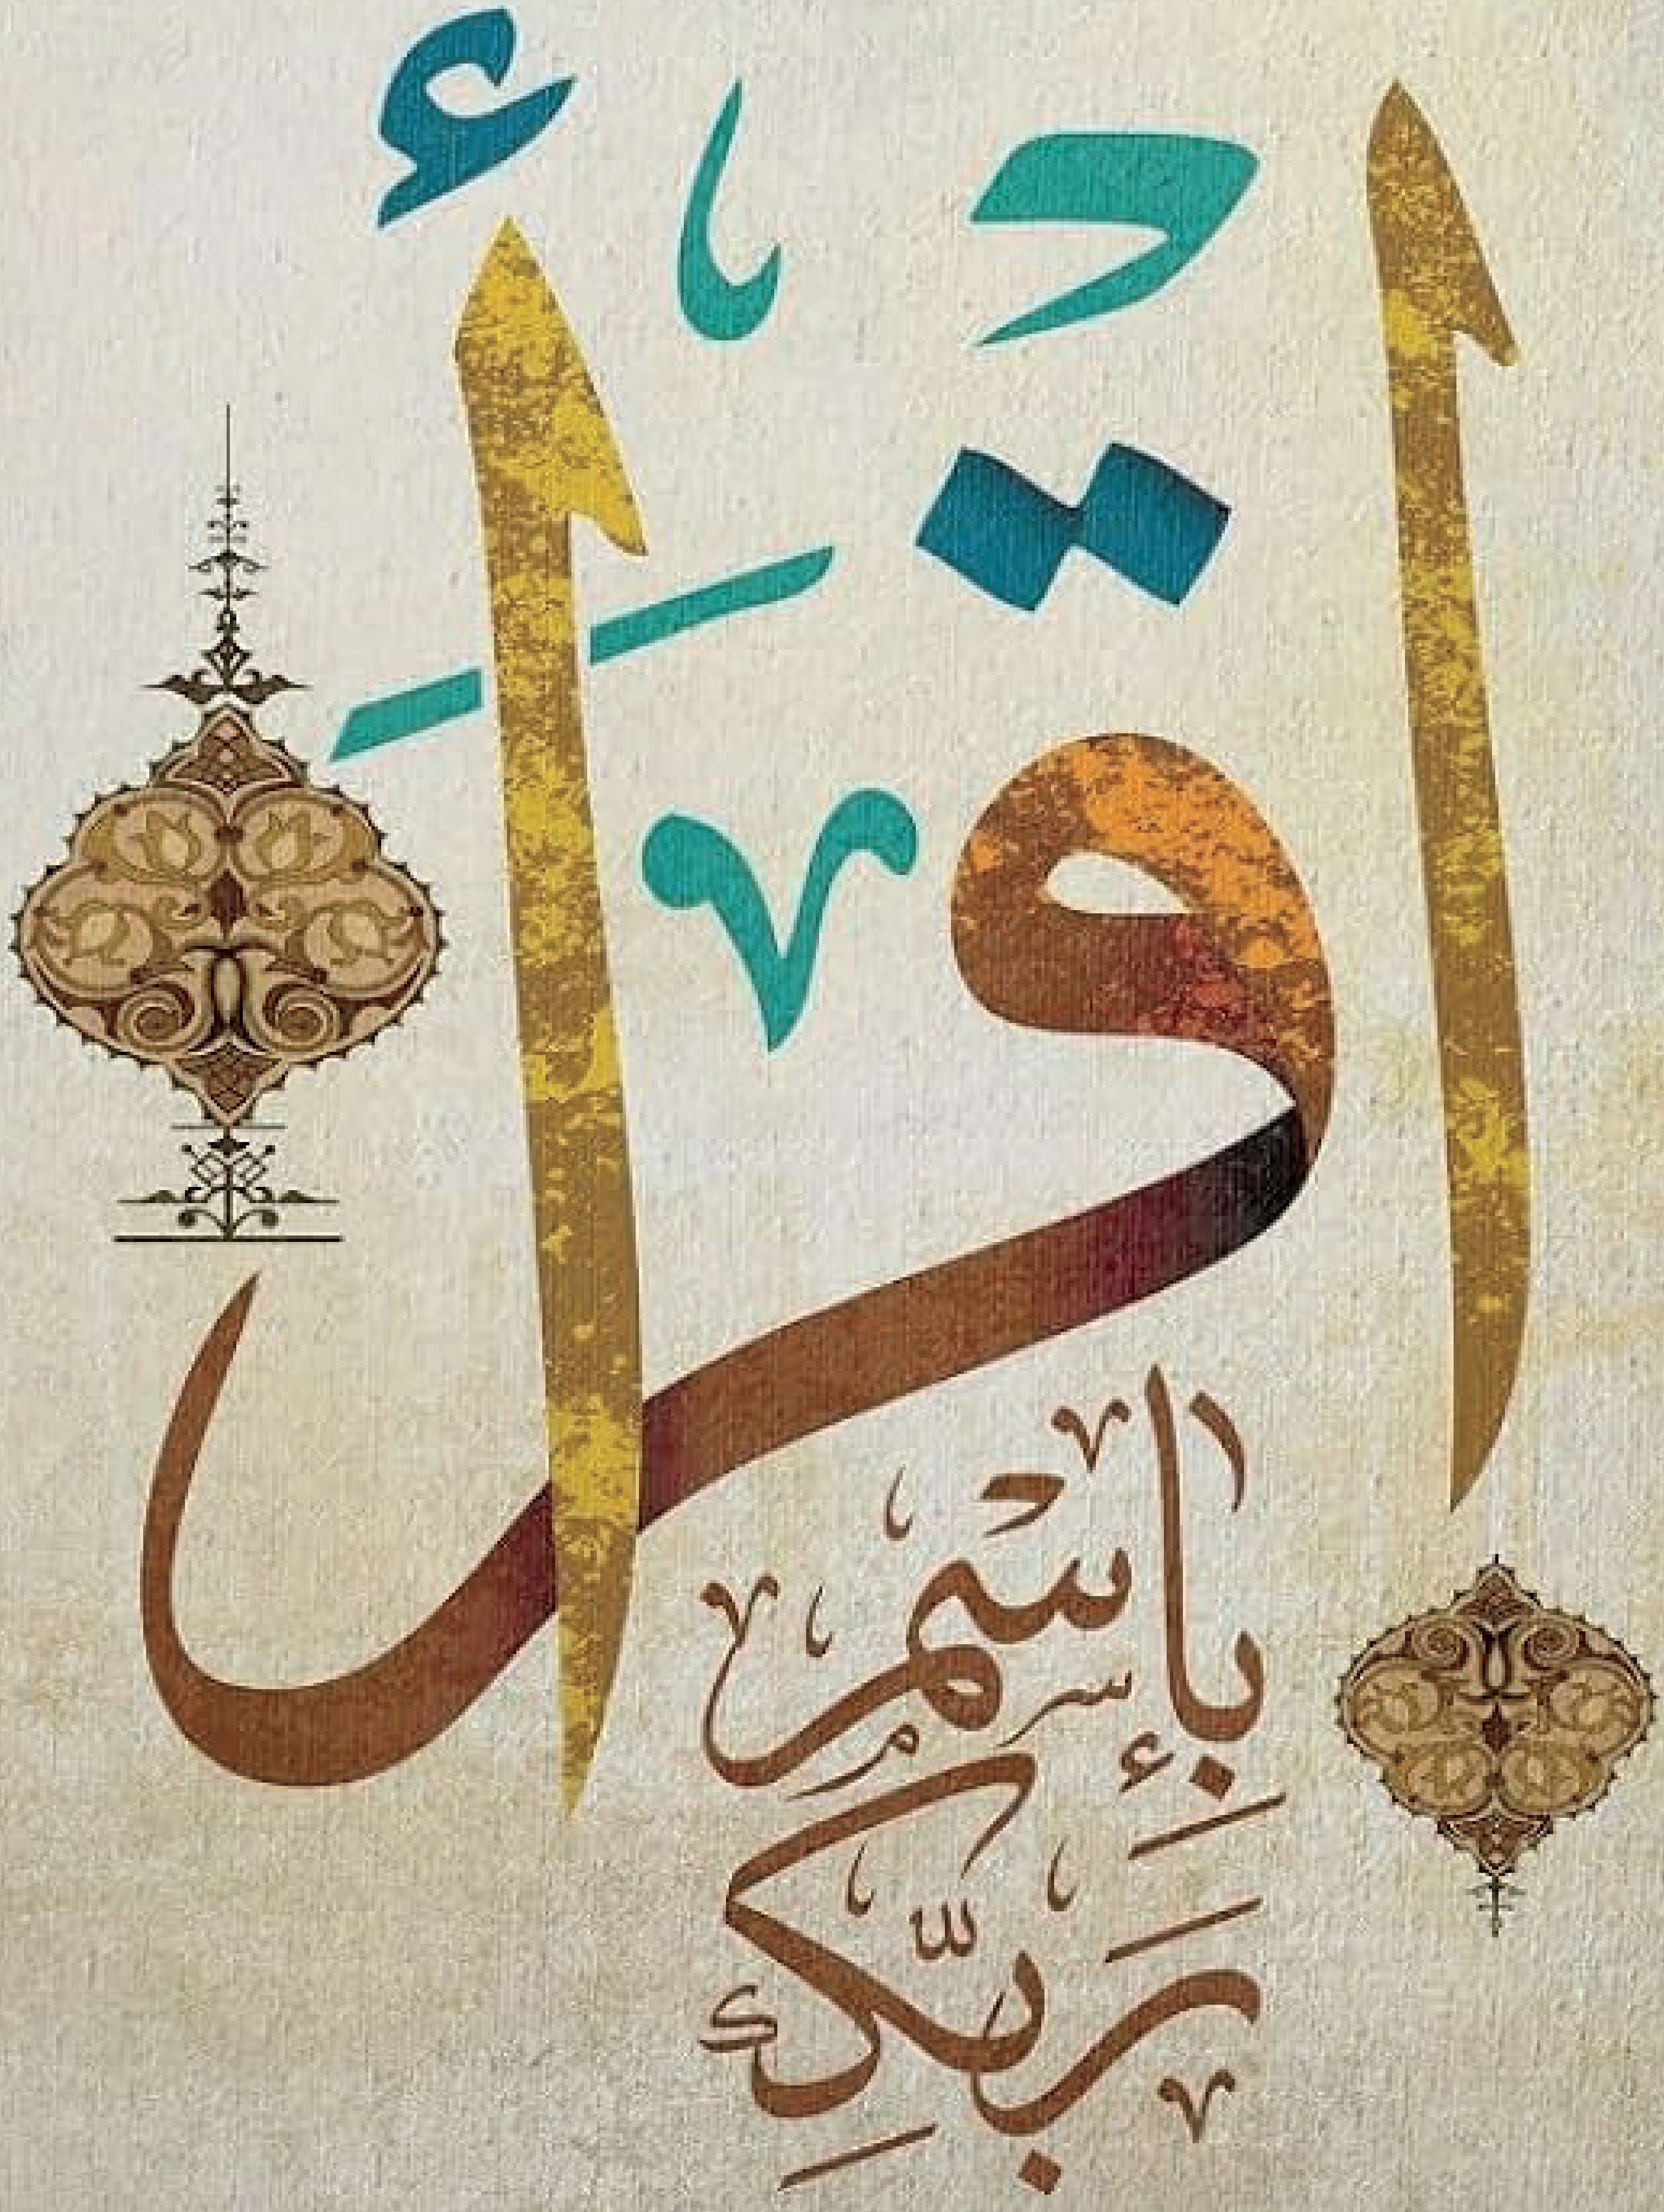 اقْرَأ
بإسْم
رَبّك